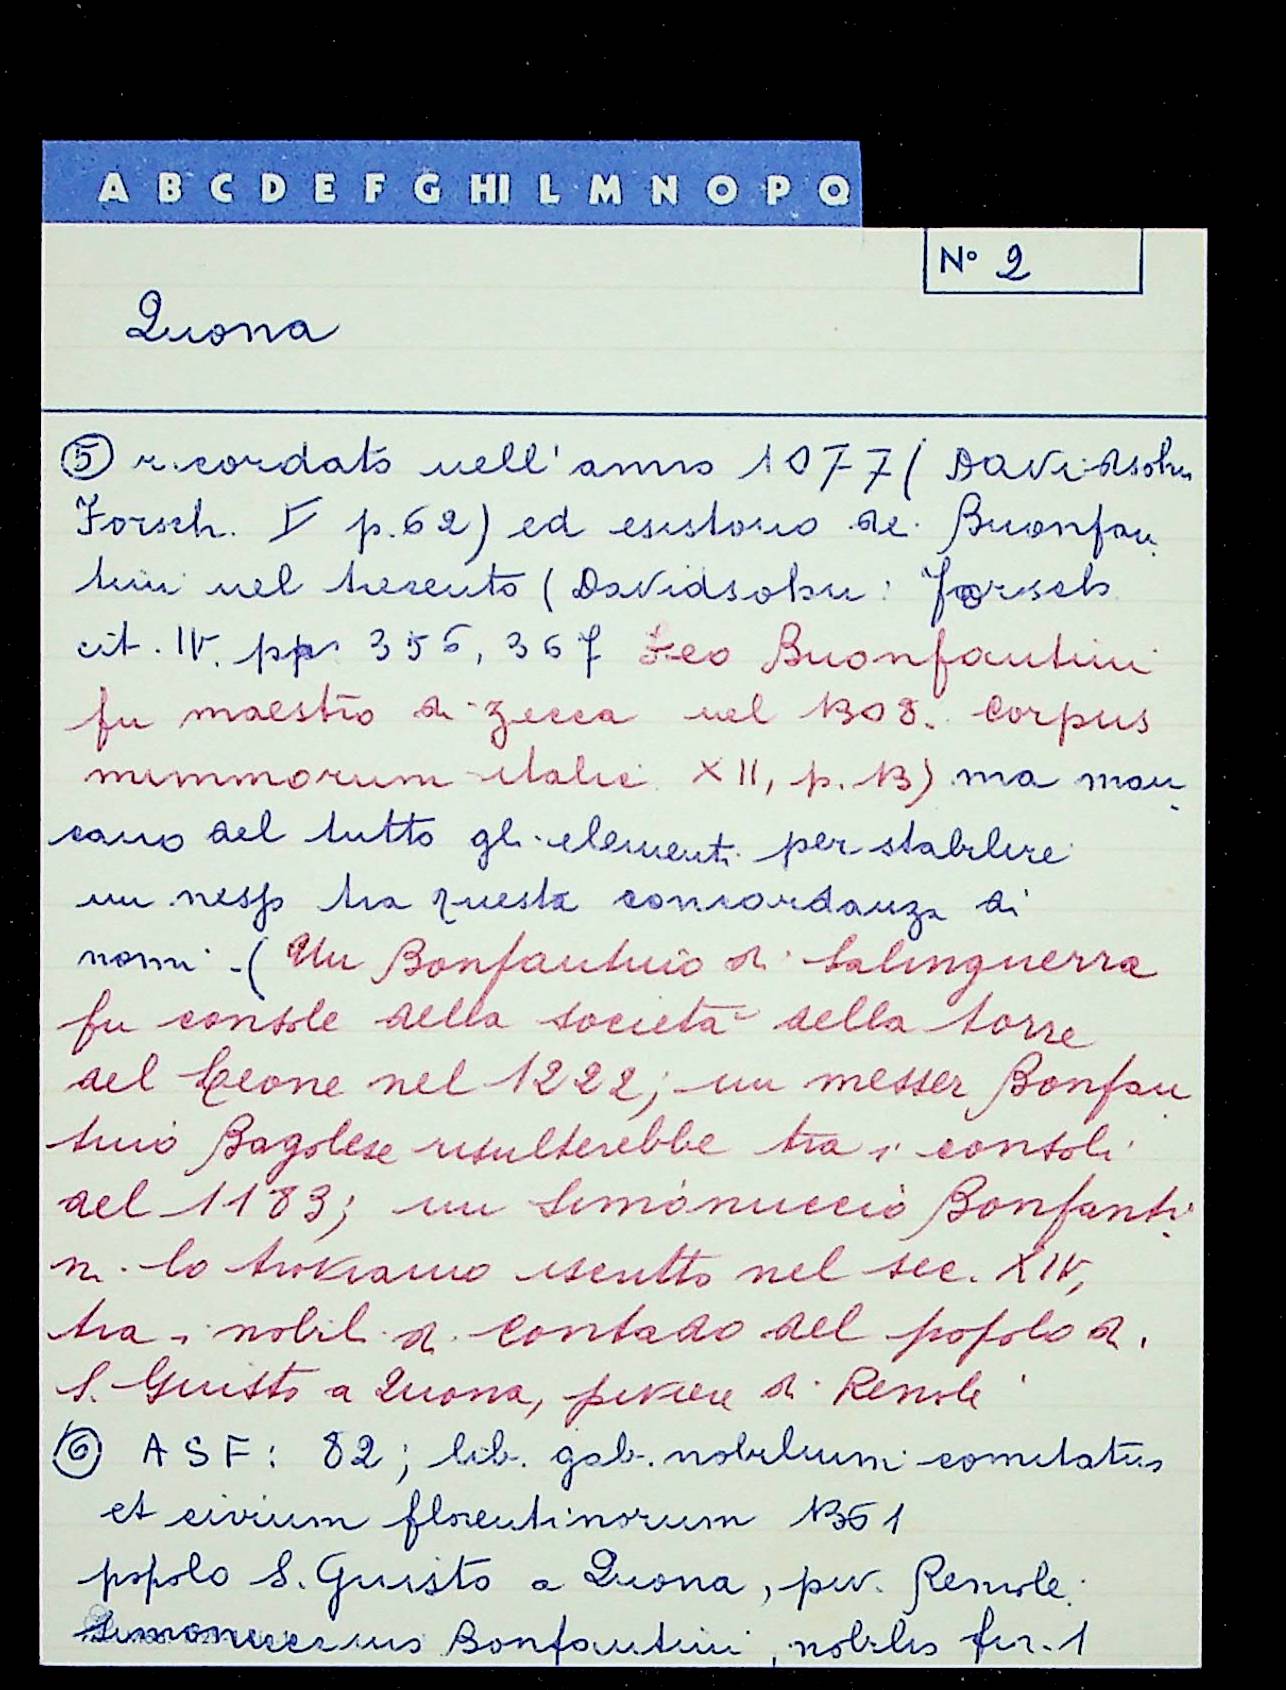 A B C D E F G HI L M N O P Q
N° 2
Quona
⑤ ricordato nell'anno 1077 (Davidsohn
Forsch. V p. 62) ed esistono dei Buonfan
tini nel trecento (Davidsohn: Forsch
cit. IV. pp. 356, 367 Leo Buonfantini
fu maestro di zecca nel 1308. Corpus
nummorum italic XII, p. 13) ma man
cano del tutto gli elementi per stabilire
un nesso tra questa concordanza di
nomi - (Un Bonfantino di Salinguerra
fu console della società della torre
del Leone nel 1222; un messer Bonfan
tino Bagolese risulterebbe tra i consoli
del 1183; un Simonuccio Bonfanti
ni lo troviamo iscritto nel sec. XIV,
tra i nobili di contado del popolo di
S. Giusto a Quona, piviere di Remole
⑥ ASF: 82; lib. gab. nobilium comitatus
et civium florentinorum 1351
popolo S. Giusto a Quona, piv. Remole.
Bonfantini, nobilis fior. 1